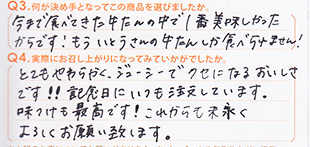 Q3.何が決め手となってこの商品を選びましたか。
今まで食べてきた牛たんの中で1番美味しかった
からです!もういとうさんの牛たんしか食べられません!
Q4.実際にお召し上がりになってみていかがでしたか。
とてもやわらかく、ジューシーでクセになるおいしさ
です!!記念日にいつも注文しています。
味つけも最高です!これからも末永く
よろしくお願い致します。